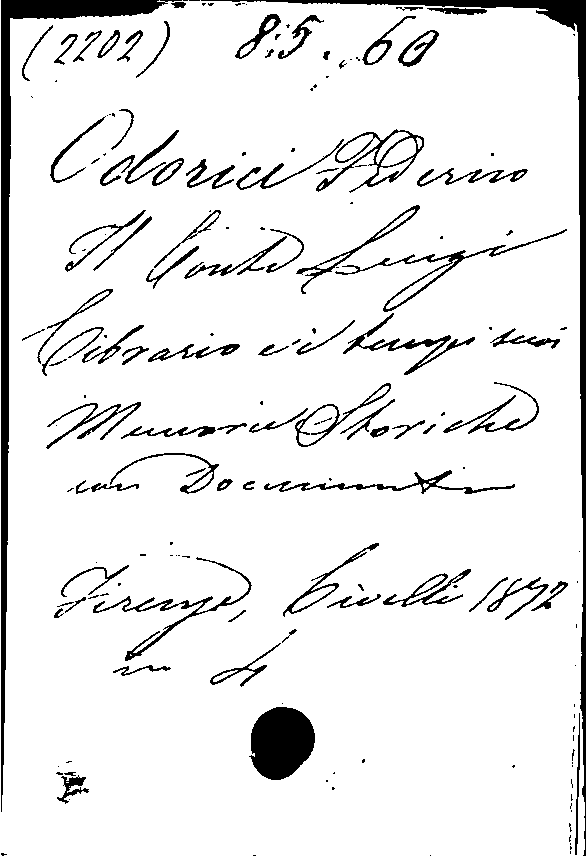 (2202) 8.5.60
Odorici Federico
Il Conte Luigi
Cibrario e i tempi suoi
Memorie Storiche
con Documenti
Firenze, Civelli 1872
in 4